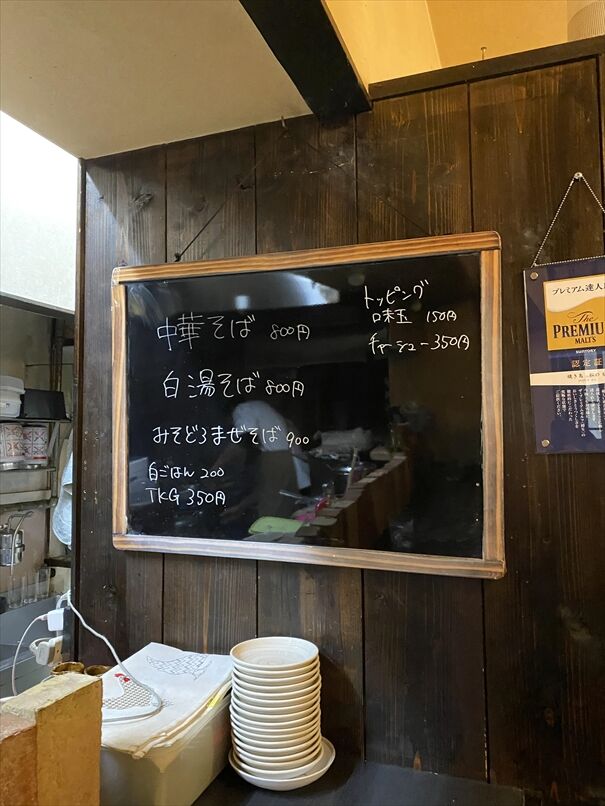 中華そば 800円
白湯そば 800円
みそどろまぜそば 900
白ごはん 200
TKG 350円
トッピング
味玉 150円
チャーシュー 350円
プレミアム達人店
The
PREMIUM
MALT'S
SUNTORY
認定証